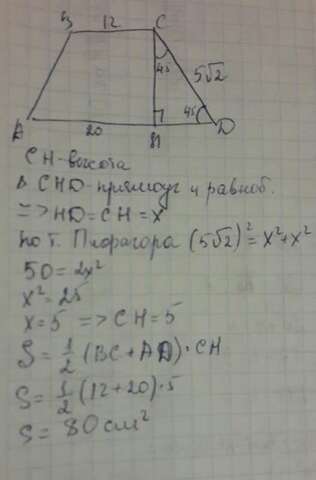 B 12 C
45 5√2
A 20 H 45 D
CH-высота
Δ CHD-прямоуг и равноб.
=> HD=CH=x
по т. Пифагора (5√2)²=x²+x²
50=2x²
x²=25
x=5 => CH=5
S=½(BC+AD)·CH
S=½(12+20)·5
S=80см²